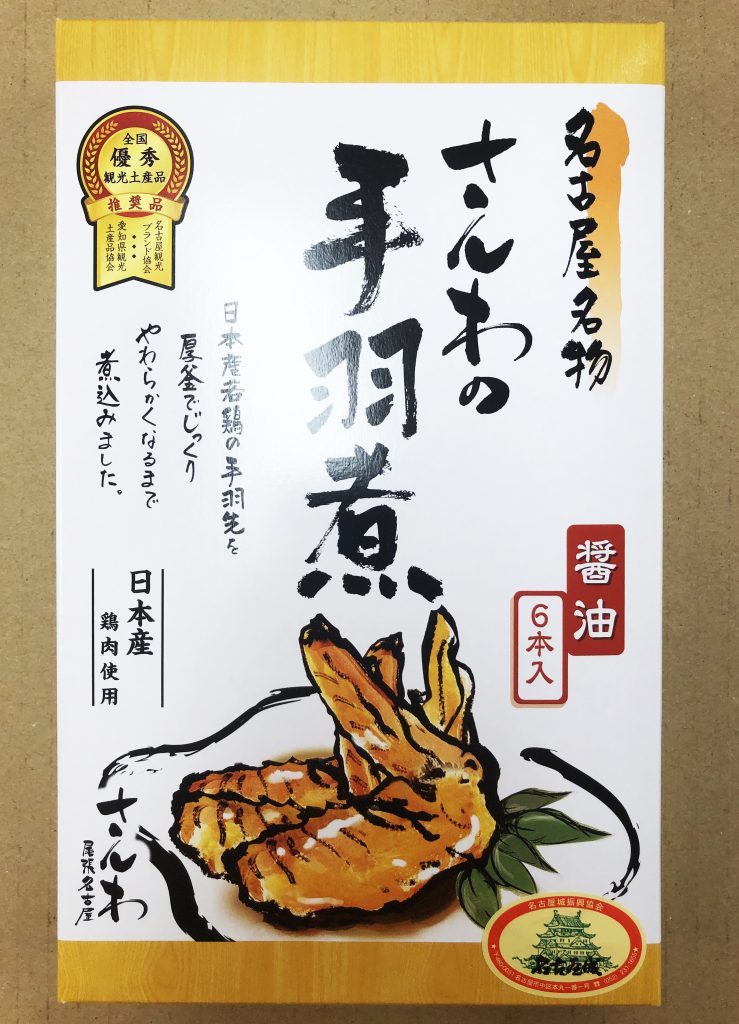 名古屋名物
さんわの
手羽煮
全国
優秀
観光土産品
推奨品
名古屋観光
ブランド協会
愛知県観光
土産品協会
日本産若鶏の手羽先を
厚釜でじっくり
やわらかくなるまで
煮込みました。
醤油
6本入
日本産
鶏肉使用
さんわ
尾張名古屋
名古屋城振興協会
名古屋城
〒460-0031 名古屋市中区本丸一番一号 ☎ (052) 231-1655